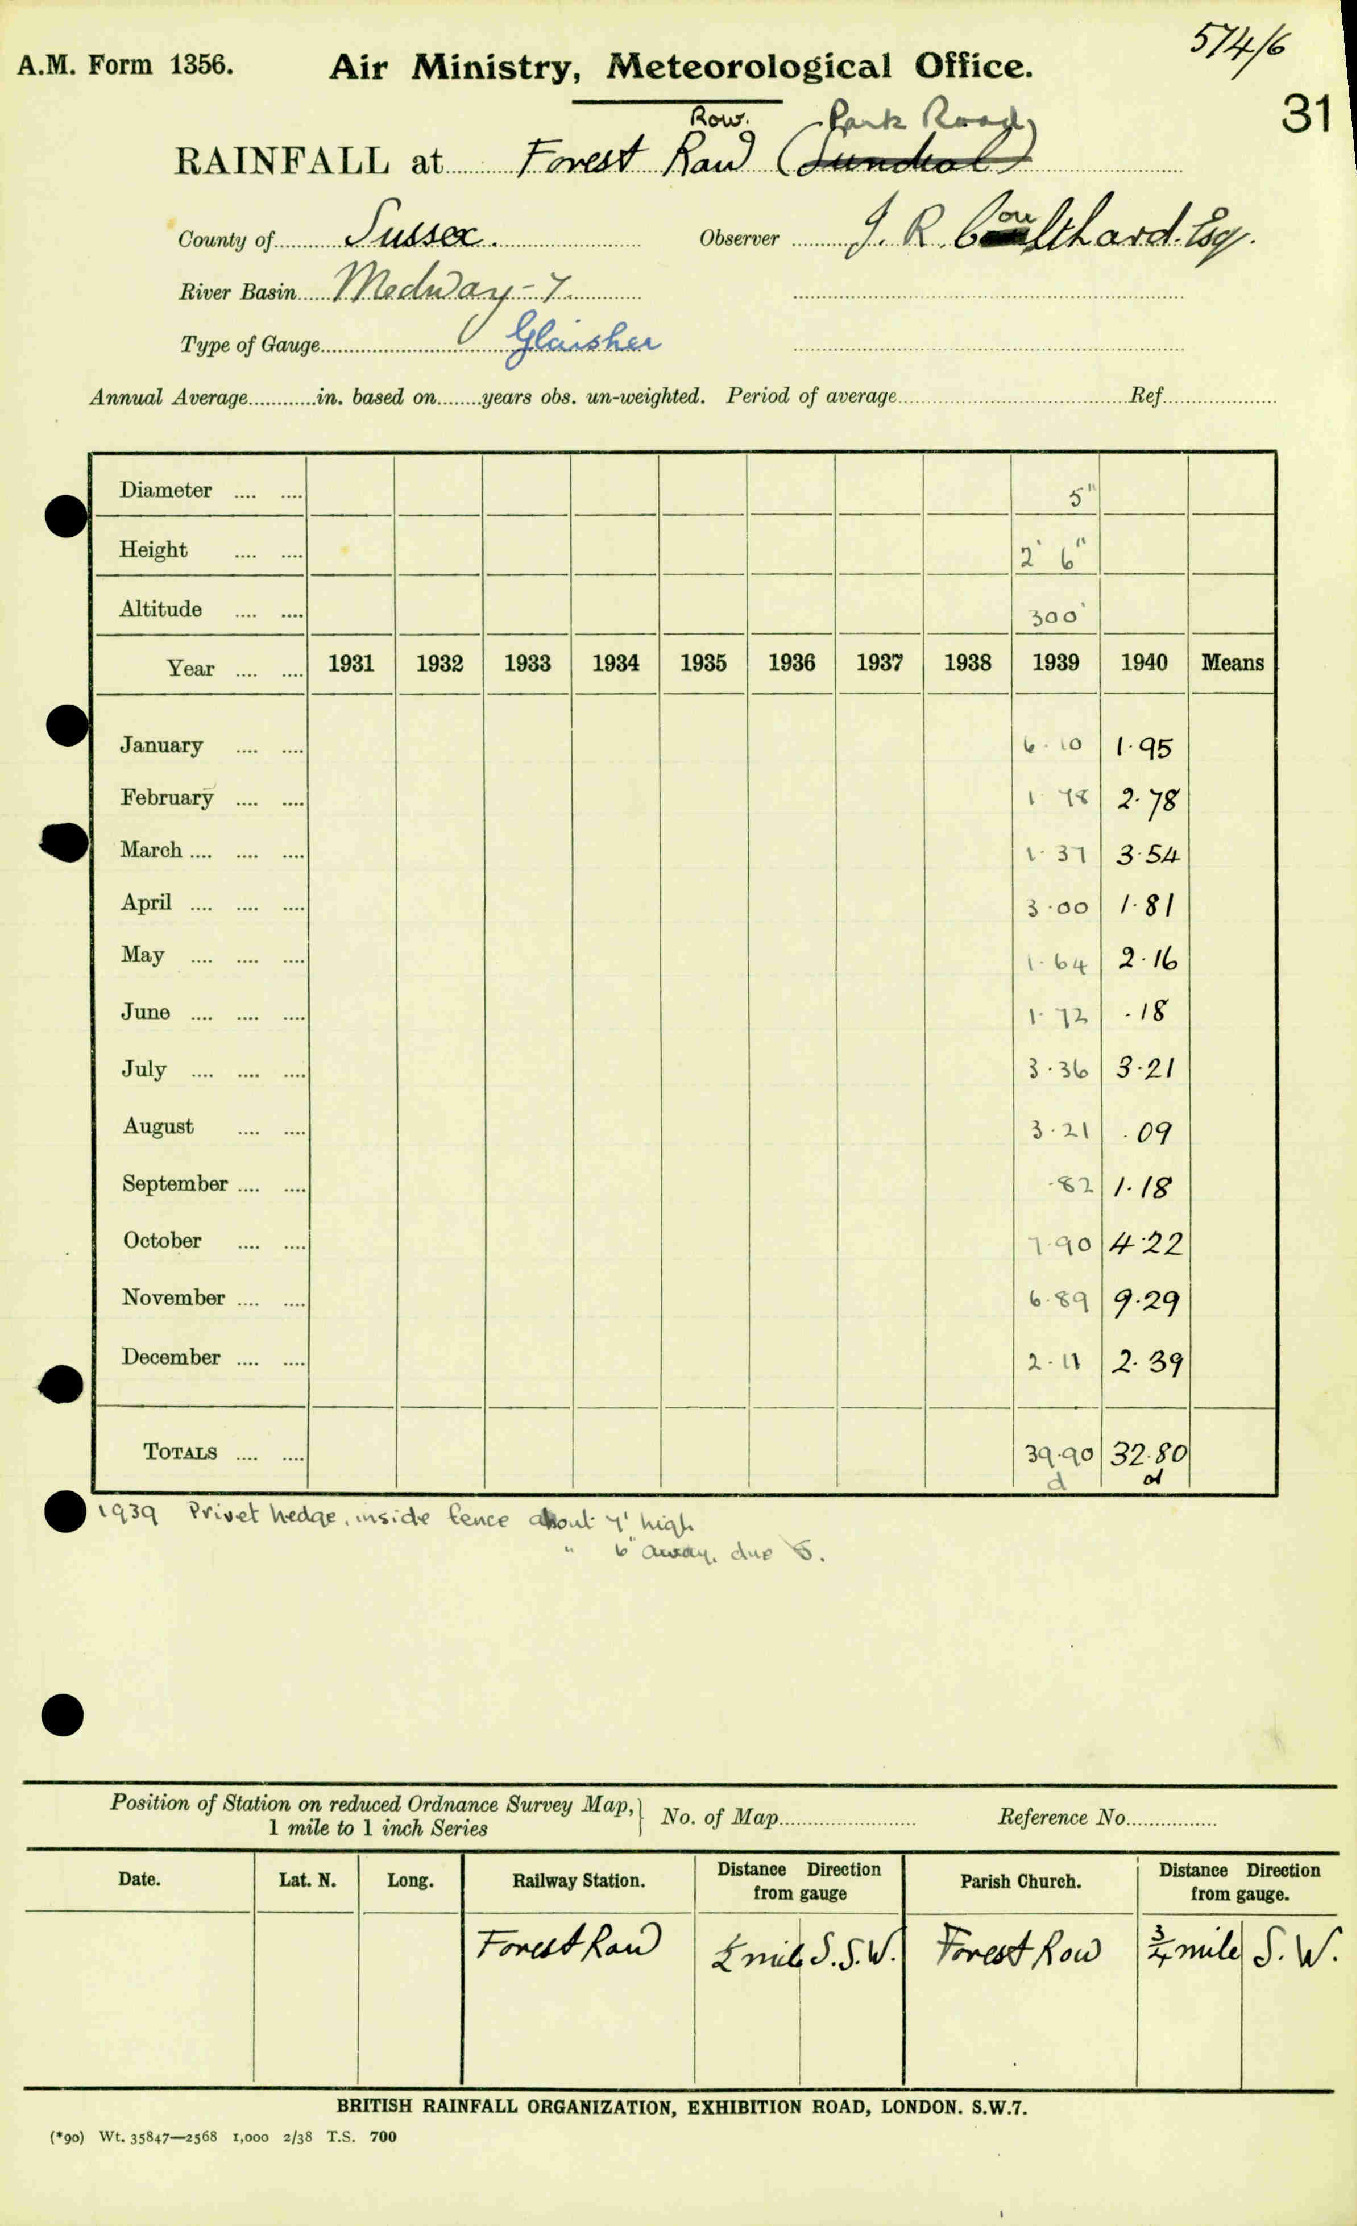 574/6
A.M. Form 1356. Air Ministry, Meteorological Office.
31
Row. Park Road
RAINFALL at Forest Raw (Sundial)
County of Sussex. Observer J. R. Coulthard. Esq.
River Basin Medway-7
Type of Gauge Glaisher
Annual Average............in. based on........years obs. un-weighted. Period of average.................... Ref....................
Diameter .... .... 5"
Height .... .... 2' 6"
Altitude .... .... 300'
Year .... .... 1931 1932 1933 1934 1935 1936 1937 1938 1939 1940 Means
January .... .... 6.10 1.95
February .... .... 1.78 2.78
March .... .... .... 1.37 3.54
April .... .... .... 3.00 1.81
May .... .... .... 1.64 2.16
June .... .... .... 1.72 .18
July .... .... .... 3.36 3.21
August .... .... 3.21 .09
September .... .... .82 1.18
October .... .... 7.90 4.22
November .... .... 6.89 9.29
December .... .... 2.11 2.39
TOTALS .... .... 39.90 32.80
d d
1939 Privet hedge, inside fence about 4' high
" 6" away, due S.
Position of Station on reduced Ordnance Survey Map, } No. of Map........................ Reference No.................
1 mile to 1 inch Series
Date. Lat. N. Long. Railway Station. Distance Direction from gauge Parish Church. Distance Direction from gauge.
Forest Row ½ mile S.S.W. Forest Row ¾ mile S. W.
BRITISH RAINFALL ORGANIZATION, EXHIBITION ROAD, LONDON. S.W.7.
(*90) Wt. 35847—2568 1,000 2/38 T.S. 700